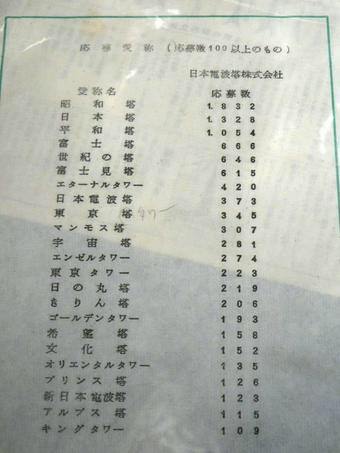 応募愛称(応募数100以上のもの)
日本電波塔株式会社
愛称名 応募数
昭和塔 1.832
日本塔 1.328
平和塔 1.054
富士塔 666
世紀の塔 646
富士見塔 615
エターナルタワー 420
日本電波塔 373
東京塔 345
マンモス塔 307
宇宙塔 281
エンゼルタワー 274
東京タワー 223
日の丸塔 219
きりん塔 206
ゴールデンタワー 193
希望塔 158
文化塔 152
オリエンタルタワー 135
プリンス塔 126
新日本電波塔 123
アルプス塔 115
キングタワー 109